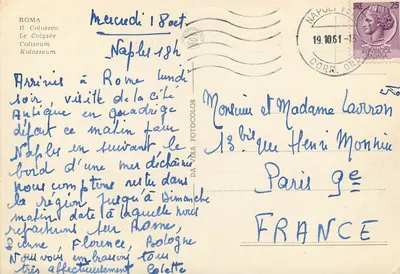 ROMA
Il Colosseo
Le Colysée
Coliseum
Kolosseum
Mercredi 18 oct
Naples 18h
Arrivés à Rome lundi
soir, visite de la cité
Antique en quadrige
départ ce matin pour
Naples en suivant le
bord d'une mer déchaînée
nous comptons rester dans
la région jusqu'à Dimanche
matin date à laquelle nous
repartirons sur Rome,
Sienne, Florence, Bologne
Nous vous embrassons tous
très affectueusement Colette
DA VERA FOTOCOLOR
NAPOLI
19.10.61
CORR.
25
Monsieur et Madame
13 bis rue Henri Monnier
Paris 9e
FRANCE